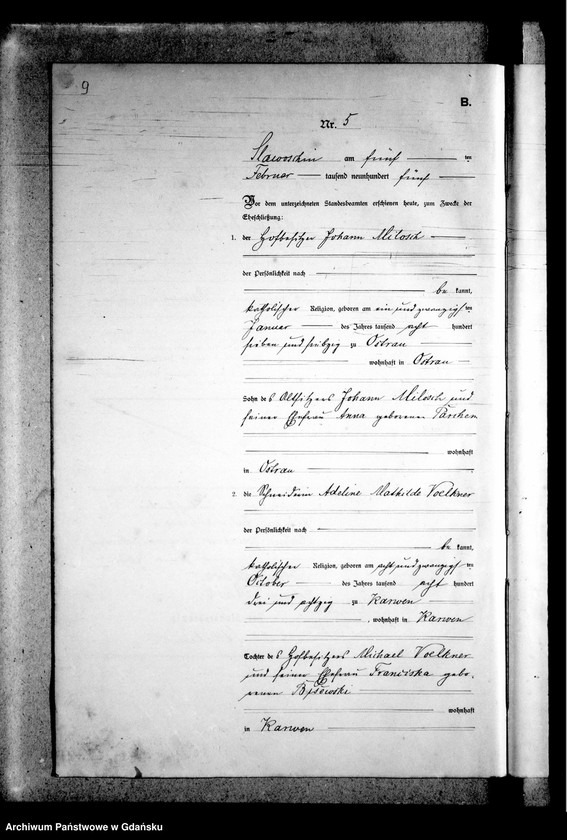 9
B.
Nr. 5
Slawoschin am fünf ten
Februar tausend neunhundert fünf
Vor dem unterzeichneten Standesbeamten erschienen heute, zum Zwecke der
Eheschließung:
1. der Hofbesitzer Johann Milosch
der Persönlichkeit nach
be kannt,
katholischer Religion, geboren am ein und zwanzigsten
Januar des Jahres tausend acht hundert
sieben und siebzig zu Ostrau
wohnhaft in Ostrau
Sohn des Altsitzers Johann Milosch und
seiner Ehefrau Anna geborenen
wohnhaft
in Ostrau
2. die Schneiderin Adeline Mathilde Voelkner
der Persönlichkeit nach
be kannt,
katholischer Religion, geboren am acht und zwanzigsten
October des Jahres tausend acht hundert
drei und achtzig zu Karwen
, wohnhaft in Karwen
Tochter des Hofbesitzers Michael Voelkner
und seiner Ehefrau Franciska gebo-
renen
wohnhaft
in Karwen
Archiwum Państwowe w Gdańsku